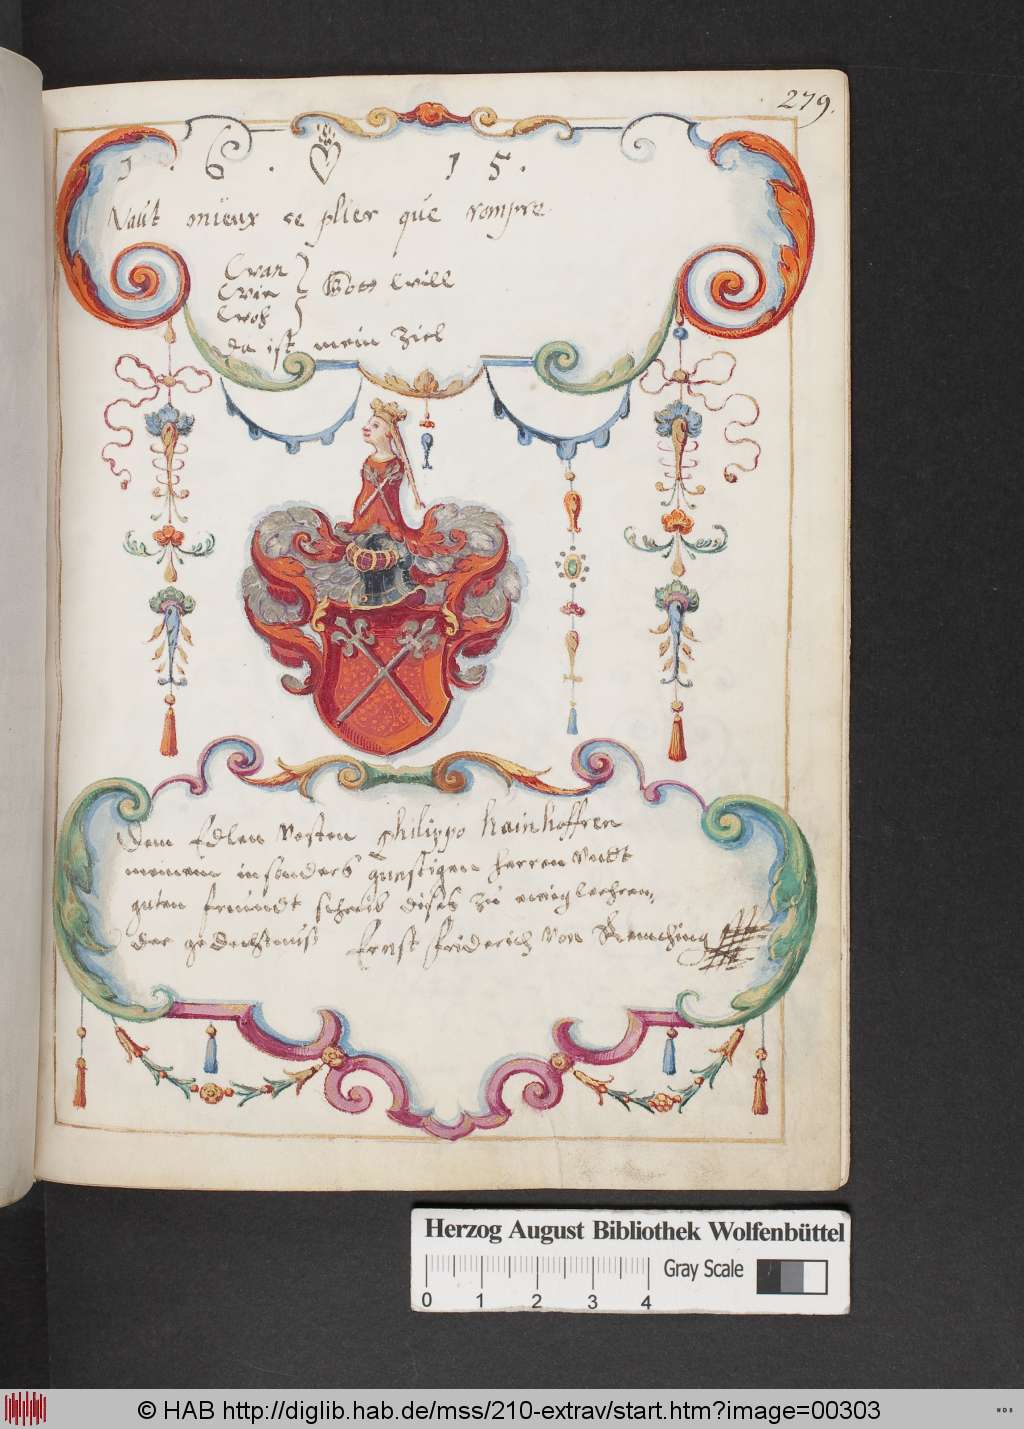 279.
1 . 6 . 1 5 .
Vaut mieux se plier que rompre
Wan
Wie
Woh
Gott will
da ist mein Ziel
Dem Edlen Vesten Philippo Hainhoffren
meinem insonders gunstigen herren undt
guten freundt schreib dises zu
der gedechtnuß Ernst Friderich von Remching
Herzog August Bibliothek Wolfenbüttel
Gray Scale
0 1 2 3 4
© HAB http://diglib.hab.de/mss/210-extrav/start.htm?image=00303